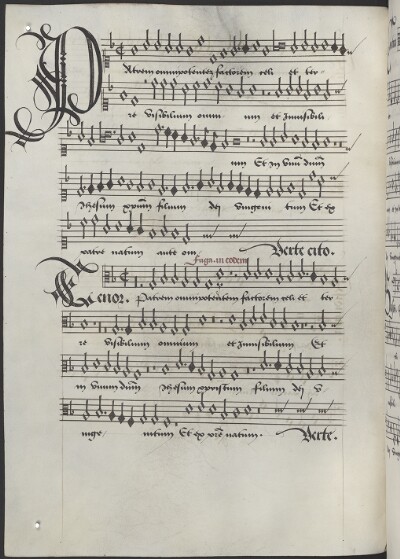 Patrem omnipotentem factorem celi et ter-
re visibilium omni um et Invisibili
um Et In unum dominum
Jhesum xpum filium dei unigeni tum Et ex
patre natum ante om Verte cito.
Fuga in eodem
Tenor. Patrem omnipotentem factorem celi et ter
re visibilium omnium et Invisibilium Et
in unum dnm Jhesum xpristum filium dei v
nige nitum Et ex pre natum. Verte.